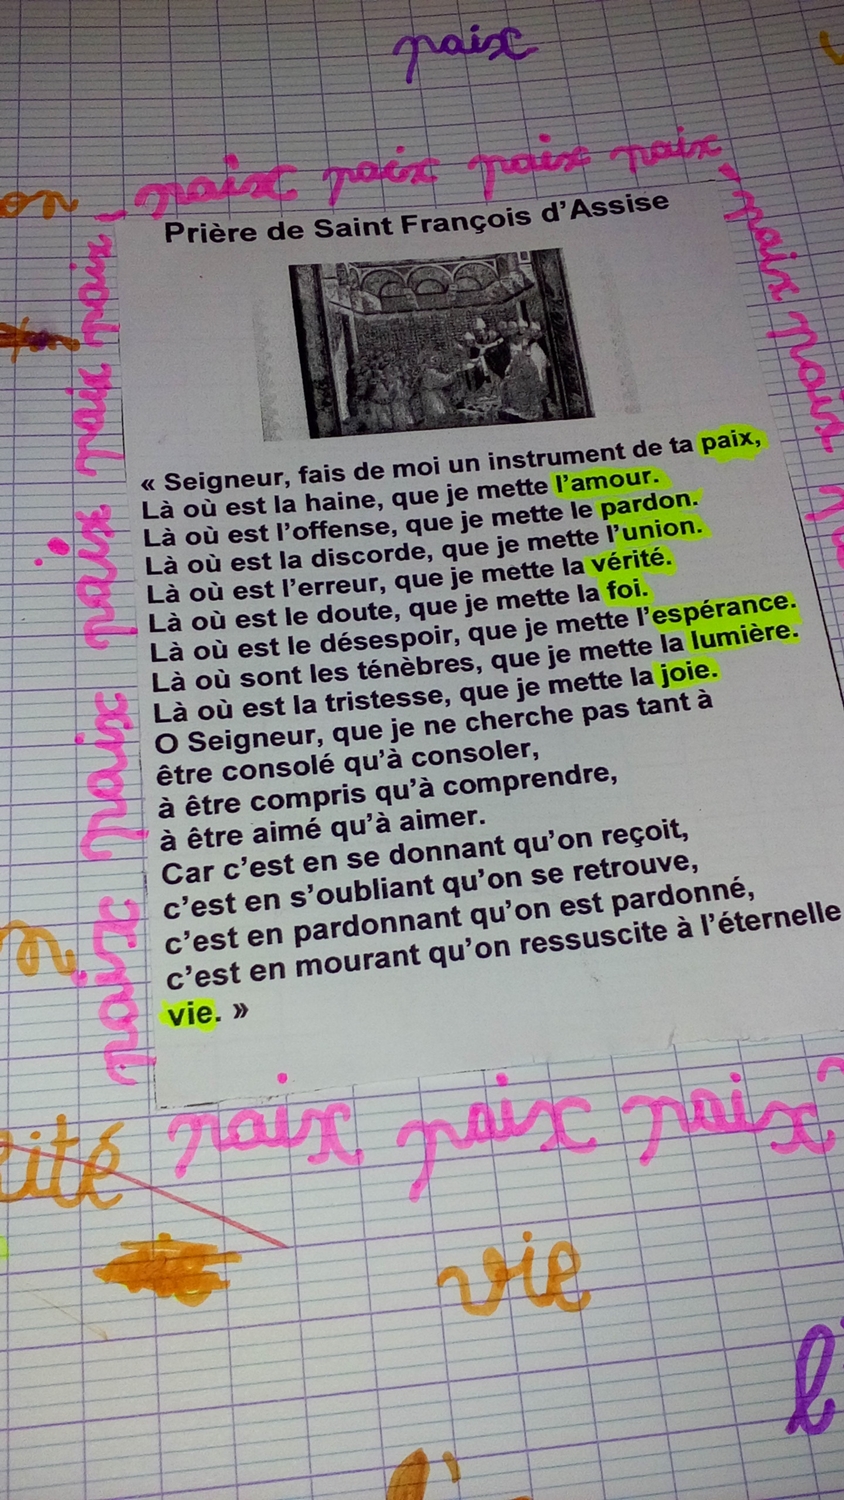 paix
paix paix paix paix
on
Prière de Saint François d'Assise
paix
paix
paix
paix
paix
paix
paix
« Seigneur, fais de moi un instrument de ta paix,
Là où est la haine, que je mette l'amour.
Là où est l'offense, que je mette le pardon.
Là où est la discorde, que je mette l'union.
Là où est l'erreur, que je mette la vérité.
Là où est le doute, que je mette la foi.
Là où est le désespoir, que je mette l'espérance.
Là où sont les ténèbres, que je mette la lumière.
Là où est la tristesse, que je mette la joie.
O Seigneur, que je ne cherche pas tant à
être consolé qu'à consoler,
à être compris qu'à comprendre,
à être aimé qu'à aimer.
Car c'est en se donnant qu'on reçoit,
c'est en s'oubliant qu'on se retrouve,
c'est en pardonnant qu'on est pardonné,
c'est en mourant qu'on ressuscite à l'éternelle
vie. »
paix paix paix
ité
vie
l'